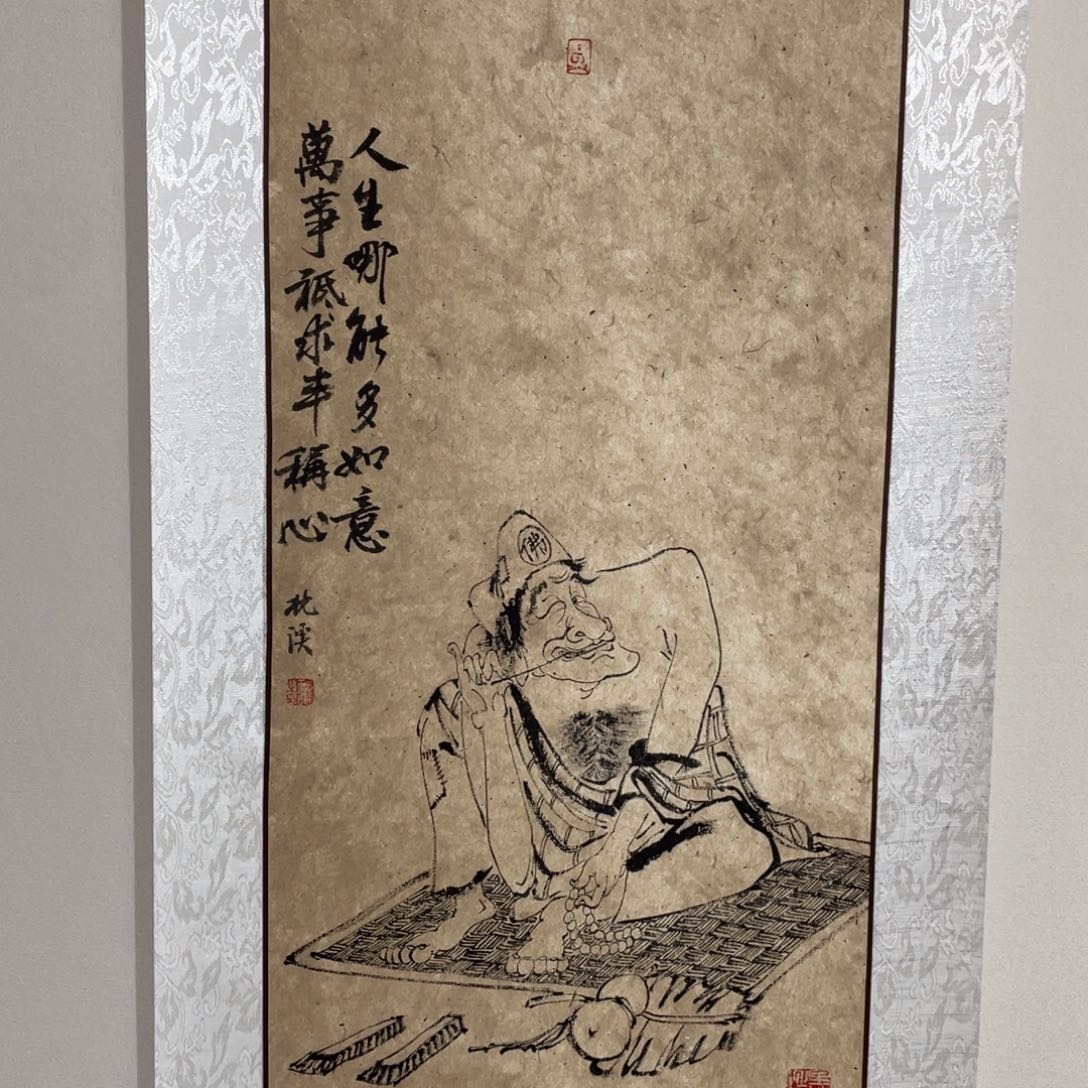 人生哪能多如意
萬事祗求半稱心
佛